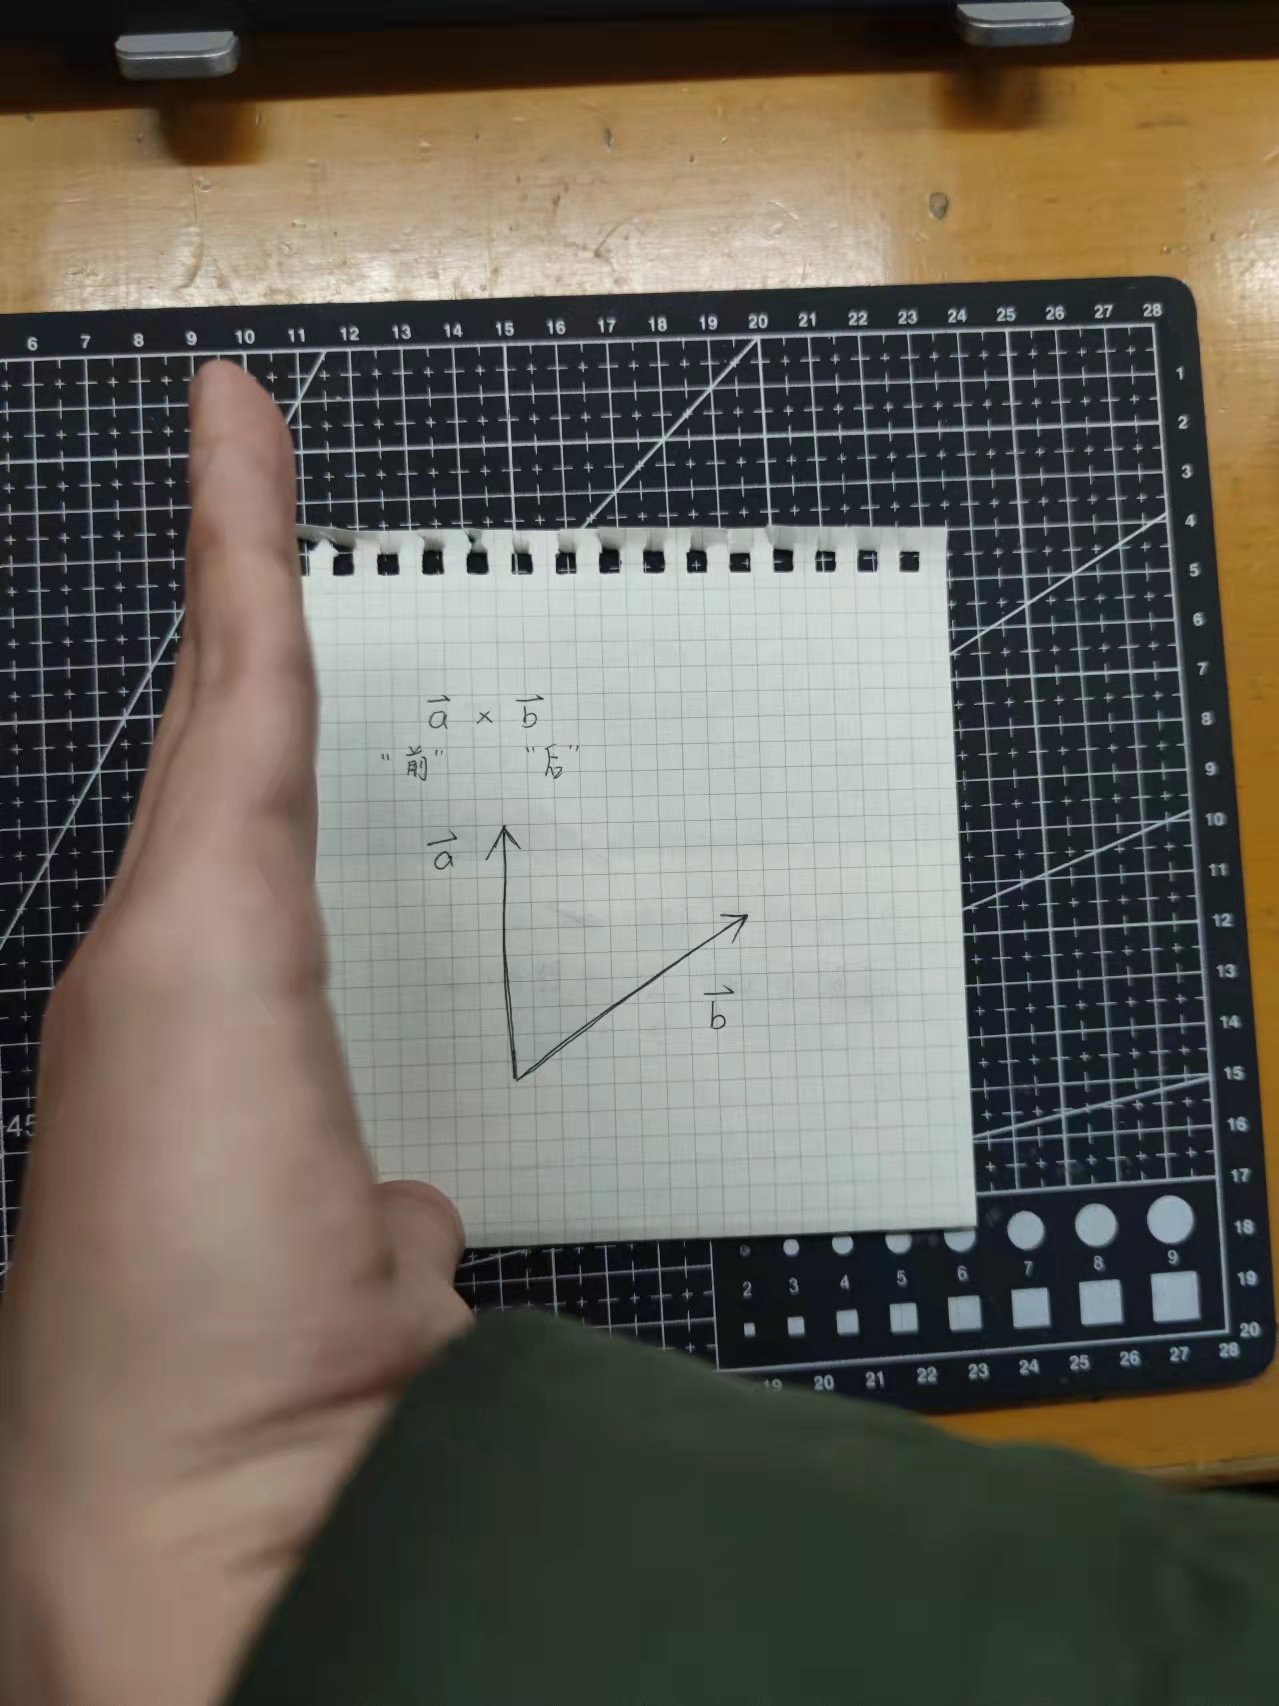 6 7 8 9 10 11 12 13 14 15 16 17 18 19 20 21 22 23 24 25 26 27 28
1
2
3
4
5
6
7
8
9
10
11
12
13
14
15
16
17
18
19
20
a⃗ × b⃗
"前" "后"
a⃗
b⃗
45
2 3 4 5 6 7 8 9
19 20 21 22 23 24 25 26 27 28